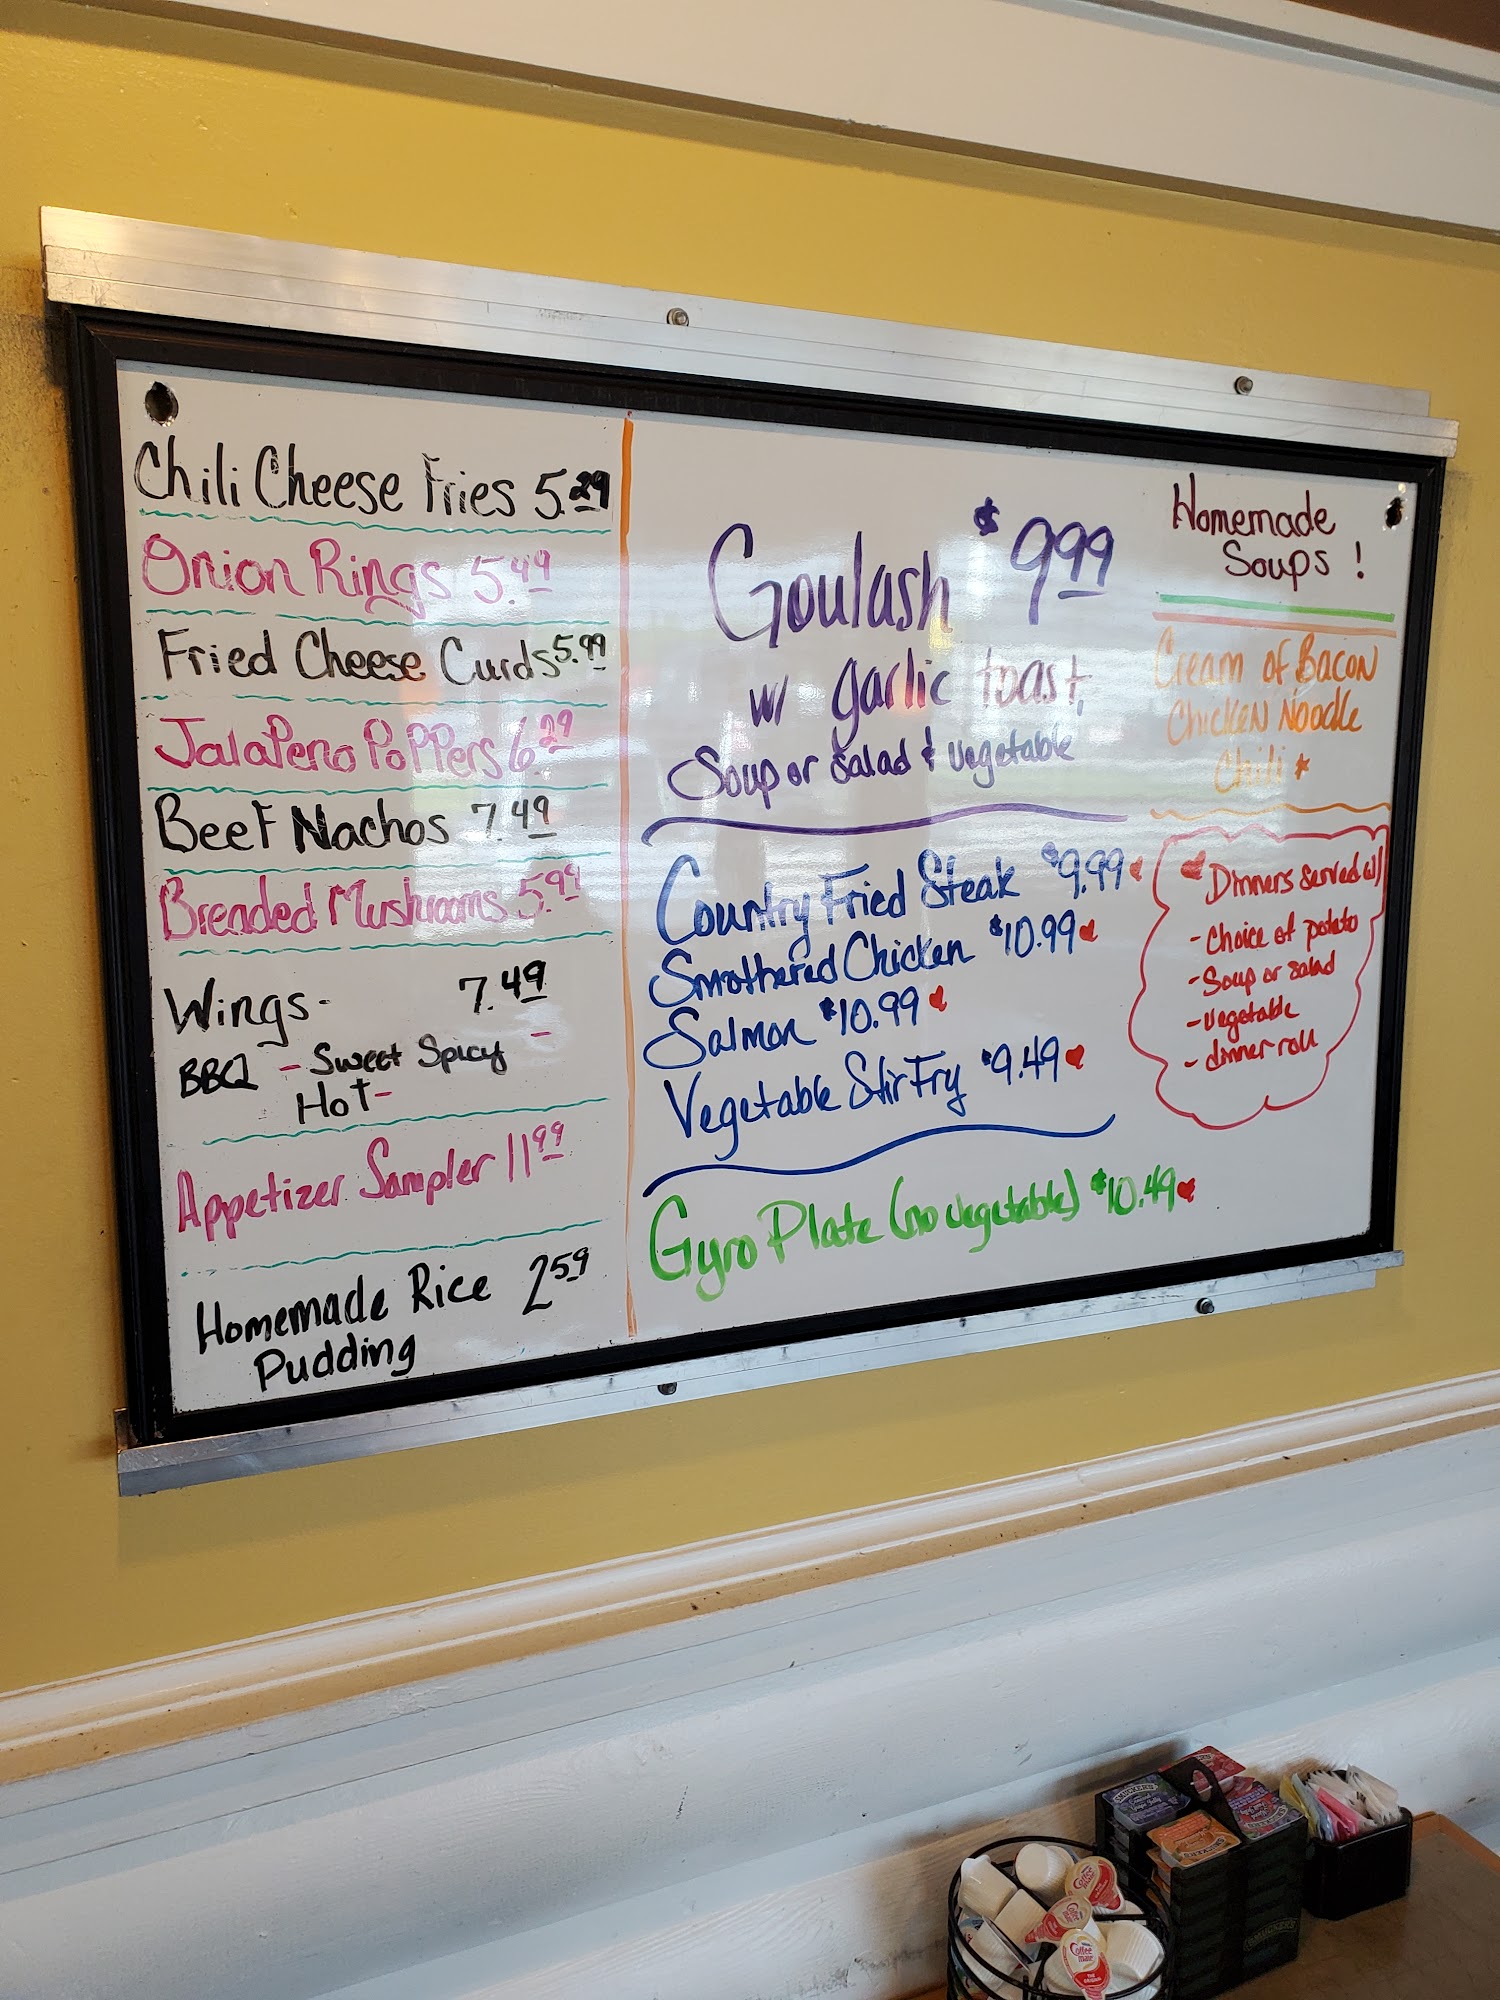 Chili Cheese Fries 5.29
Onion Rings 5.49
Fried Cheese Curds 5.99
Jalapeno Poppers 6.29
Beef Nachos 7.49
Breaded Mushrooms 5.99
Wings- 7.49
BBQ - Sweet Spicy -
Hot-
Appetizer Sampler 11.99
Homemade Rice 2.59
Pudding
Goulash $9.99
w/ garlic toast,
Soup or Salad & vegetable
Country Fried Steak $9.99
Smothered Chicken $10.99
Salmon $10.99
Vegetable Stir Fry $9.49
Gyro Plate (no vegetable) $10.49
Homemade
Soups!
Cream of Bacon
Chicken Noodle
Chili *
Dinners served w/
- Choice of potato
- Soup or salad
- vegetable
- dinner roll
SMUCKER'S
SMUCKER'S
SMUCKER'S
Coffee mate
Coffee mate